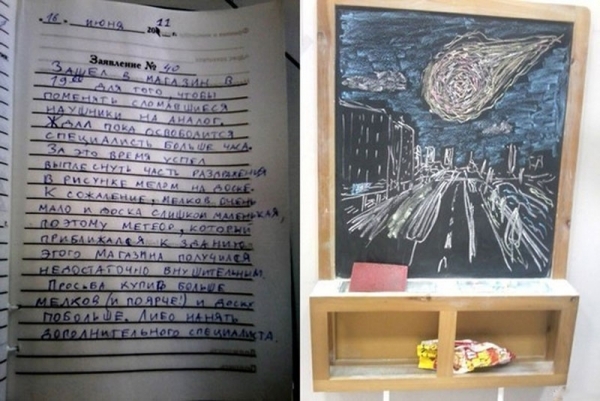 16 июня 2011
Заявление № 40
Зашел в магазин в
19:00 для того чтобы
поменять сломавшиеся
наушники на аналог.
Ждал пока освободится
специалист больше часа.
За это время успел
выплеснуть часть разражения
в рисунке мелом на доске.
К сожалению, мелков очень
мало и доска слишком маленькая,
поэтому метеор, который
приближался к зданию
этого магазина получился
недостаточно внушительным.
Просьба купить больше
мелков (и поярче!) и доску
побольше. Либо нанять
дополнительного специалиста.